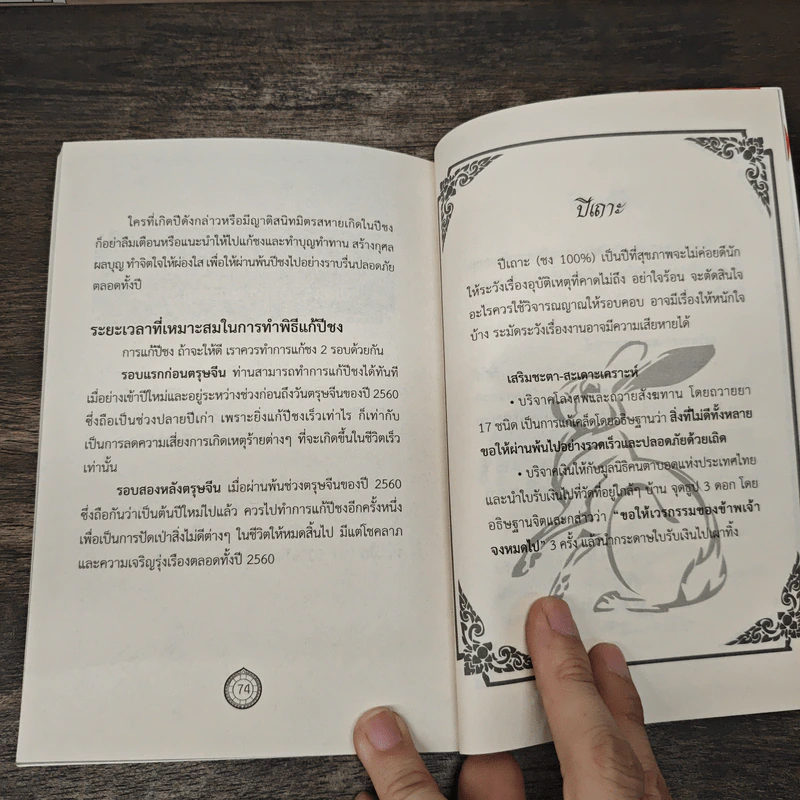 ใครที่เกิดปีดังกล่าวหรือมีญาติสนิทมิตรสหายเกิดในปีชง
ก็อย่าลืมเตือนหรือแนะนำให้ไปแก้ชงและทำบุญทำทาน สร้างกุศล
ผลบุญ ทำจิตใจให้ผ่องใส เพื่อให้ผ่านพ้นปีชงไปอย่างราบรื่นปลอดภัย
ตลอดทั้งปี
ระยะเวลาที่เหมาะสมในการทำพิธีแก้ปีชง
การแก้ปีชง ถ้าจะให้ดี เราควรทำการแก้ชง 2 รอบด้วยกัน
รอบแรกก่อนตรุษจีน ท่านสามารถทำการแก้ชงได้ทันที
เมื่อย่างเข้าปีใหม่และอยู่ระหว่างช่วงก่อนถึงวันตรุษจีนของปี 2560
ซึ่งถือเป็นช่วงปลายปีเก่า เพราะยิ่งแก้ปีชงเร็วเท่าไร ก็เท่ากับ
เป็นการลดความเสี่ยงการเกิดเหตุร้ายต่างๆ ที่จะเกิดขึ้นในชีวิตเร็ว
เท่านั้น
รอบสองหลังตรุษจีน เมื่อผ่านพ้นช่วงตรุษจีนของปี 2560
ซึ่งถือกันว่าเป็นต้นปีใหม่ไปแล้ว ควรไปทำการแก้ปีชงอีกครั้งหนึ่ง
เพื่อเป็นการปัดเป่าสิ่งไม่ดีต่างๆ ในชีวิตให้หมดสิ้นไป มีแต่โชคลาภ
และความเจริญรุ่งเรืองตลอดทั้งปี 2560
74
ปีเถาะ
ปีเถาะ (ชง 100%) เป็นปีที่สุขภาพจะไม่ค่อยดีนัก
ให้ระวังเรื่องอุบัติเหตุที่คาดไม่ถึง อย่าใจร้อน จะตัดสินใจ
อะไรควรใช้วิจารณญาณให้รอบคอบ อาจมีเรื่องให้หนักใจ
บ้าง ระมัดระวังเรื่องงานอาจมีความเสียหายได้
เสริมชะตา-สะเดาะเคราะห์
• บริจาคโลงศพและถวายสังฆทาน โดยถวายยา
17 ชนิด เป็นการแก้เคล็ดโดยอธิษฐานว่า สิ่งที่ไม่ดีทั้งหลาย
ขอให้ผ่านพ้นไปอย่างรวดเร็วและปลอดภัยด้วยเถิด
• บริจาคเงินให้กับมูลนิธิคนตาบอดแห่งประเทศไทย
และนำใบรับเงินไปที่วัดที่อยู่ใกล้ๆ บ้าน จุดธูป 3 ดอก โดย
อธิษฐานจิตและกล่าวว่า "ขอให้เวรกรรมของข้าพเจ้า
จงหมดไป" 3 ครั้ง แล้วนำกระดาษใบรับเงินไปเผาทิ้ง